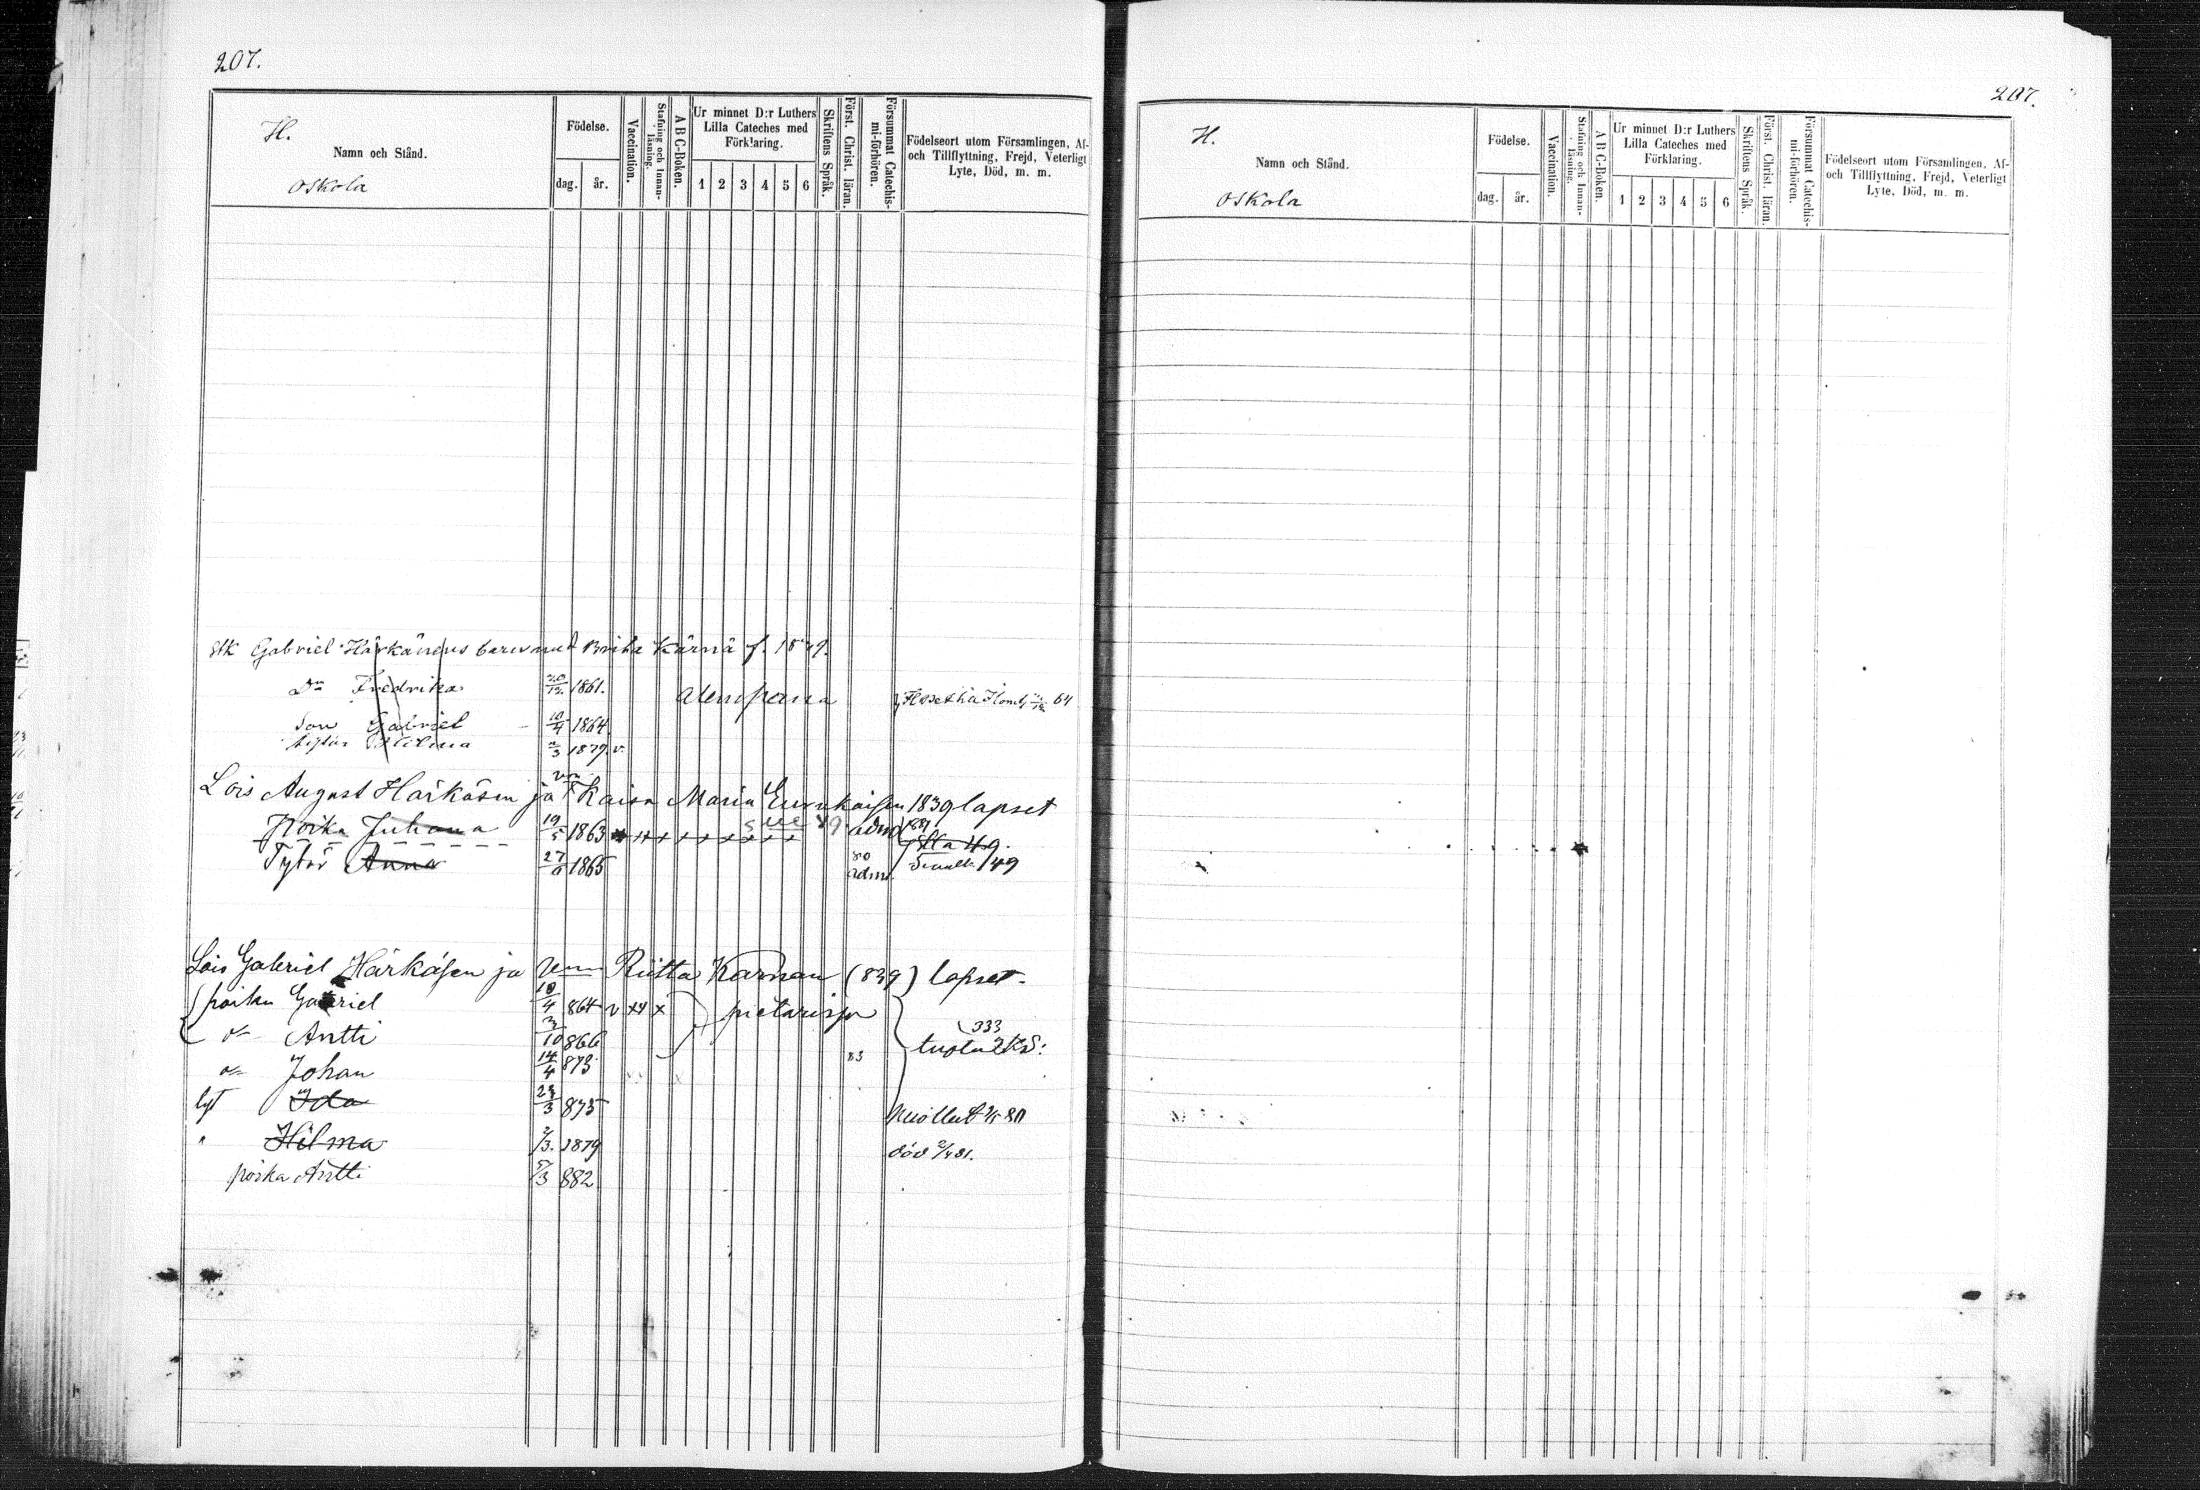 207.
H.
Namn och Stånd.
Oskola
Födelse.
dag. år.
Vaccination.
Stafning och Innan-läsning.
A B C-Boken.
Ur minnet D:r Luthers
Lilla Cateches med
Förklaring.
1 2 3 4 5 6
Skriftens Språk.
Först. Christ. läran.
Försummat Catechis-mi-förhören.
Födelseort utom Församlingen, Af-
och Tillflyttning, Frejd, Veterligt
Lyte, Död, m. m.
Gabriel Härkänens barn med Brita Kärnä f. 1839.
Dr Fredrika 20/12 1861.
Son Gabriel 10/4 1864
tytär Hilma 2/3 1879. v.
alempana
64
Lois August Härkäsen ja vmn Kaisa Maria 1839 lapset
Poika Juhana 19/5 1863 adm 1881
49.
Tytär Anna 27/ 1865 80 adm. /49
Lois Gabriel Härkäsen ja Riitta Kärnän (839) lapset
poika Gabriel 10/4 864 v x x x pietarissa
Antti 3/10 866 333
Johan 14/4 873 83
tyt Ida 23/3 875 kuollut 80
" Hilma 2/3. 1879 död 2/4 81.
poika Antti 5/3 882
207.
H.
Namn och Stånd.
Oskola
Födelse.
dag. år.
Vaccination.
Stafning och Innan-läsning.
A B C-Boken.
Ur minnet D:r Luthers
Lilla Cateches med
Förklaring.
1 2 3 4 5 6
Skriftens Språk.
Först. Christ. läran.
Försummat Catechis-mi-förhören.
Födelseort utom Församlingen, Af-
och Tillflyttning, Frejd, Veterligt
Lyte, Död, m. m.